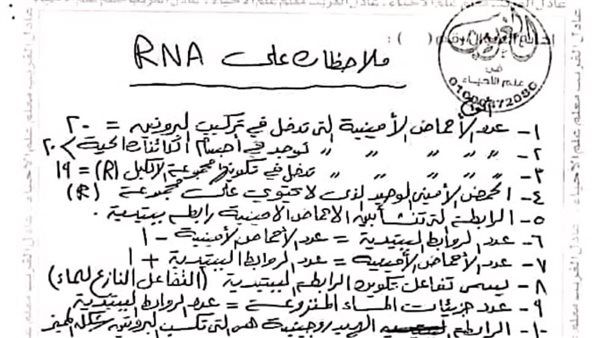 ملاحظات على RNA
الغريب
في
علم الأحياء
إجابة السؤال رقم ( ) :
١- عدد أنواع الأحماض الأمينية التى تدخل في تركيب البروتين = ٢٠
٢- " " " " توجد في أجسام الكائنات الحية > ٢٠
٣- " " " " تدخل في تكوينها مجموعة الألكيل (R) = ١٩
٤- الحمض الأمينى الوحيد الذى لا يحتوي على مجموعة (R)
٥- الرابطة التى تنشأ بين الأحماض الأمينية رابطة ببتيدية .
٦- عدد الروابط الببتيدية = عدد الأحماض الأمينية - ١
٧- عدد الأحماض الأمينية = عدد الروابط الببتيدية + ١
٨- يسمى تفاعل تكوين الرابطة الببتيدية (التفاعل النازع للماء)
٩- عدد جزيئات الماء المنزوعة = عدد الروابط الببتيدية
١٠- الرابطة الهيدروجينية هى التى تكسب البروتين شكله المميز
عادل الغريب معلم علم الأحياء